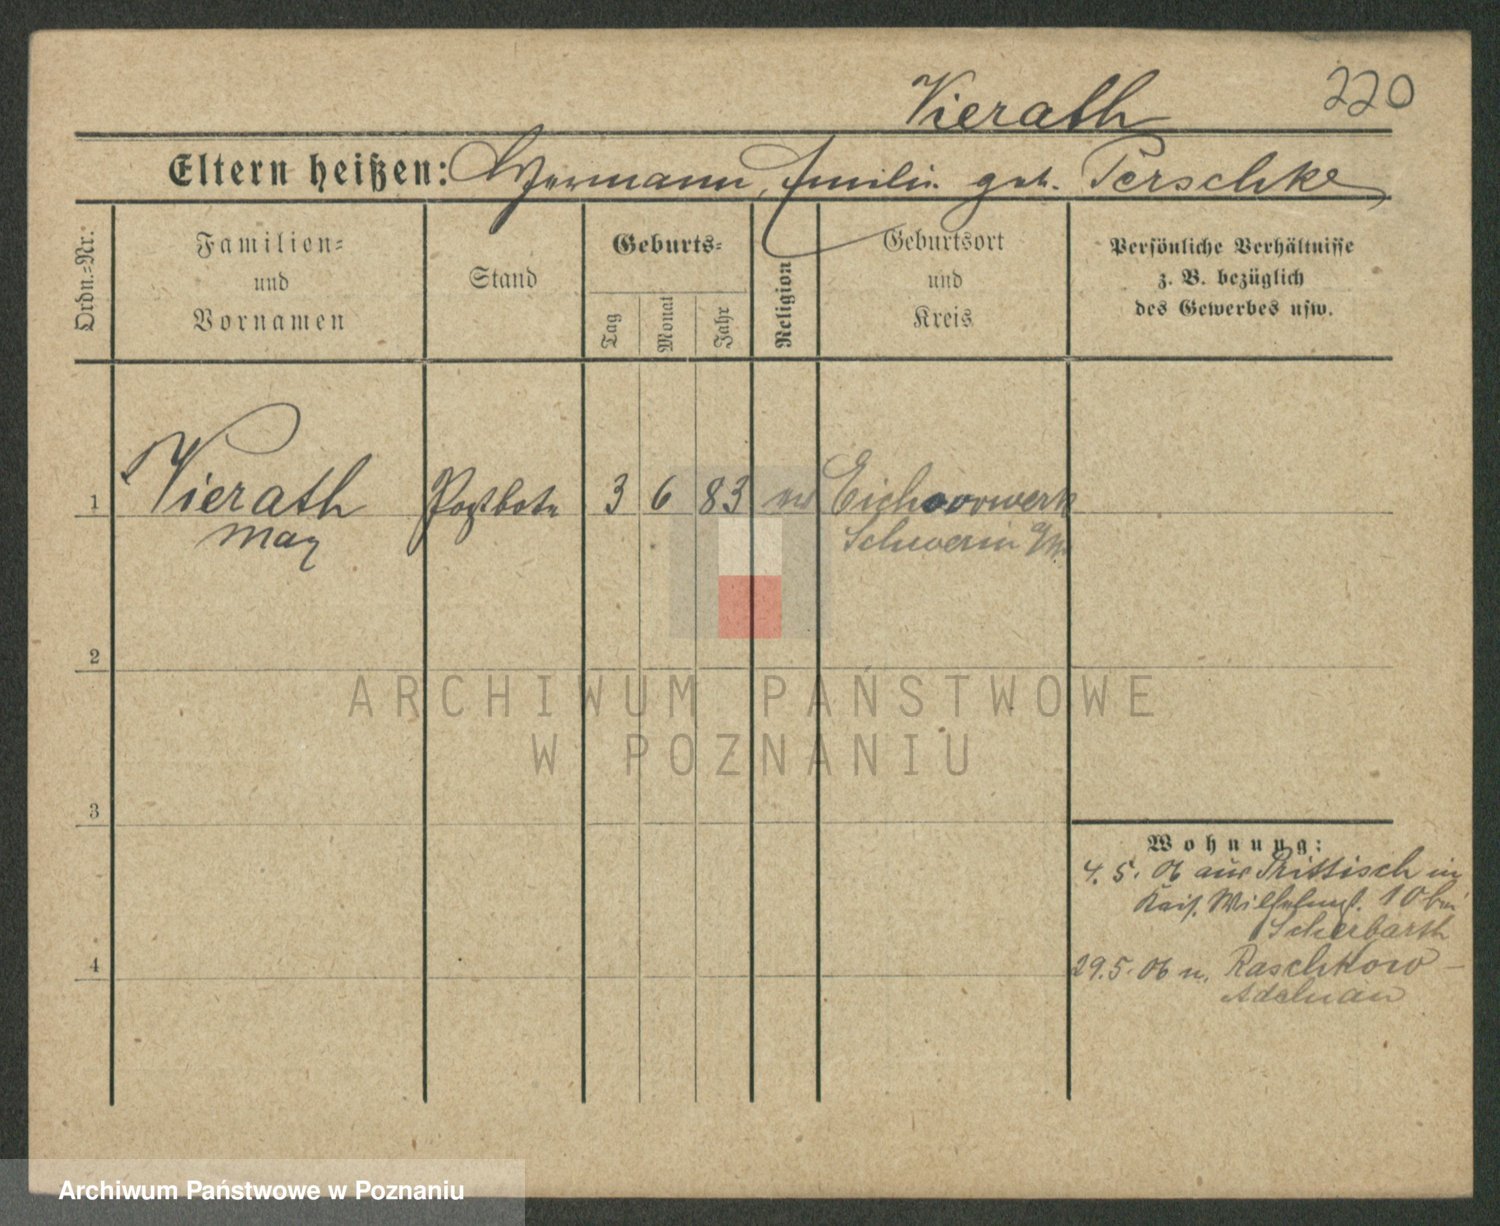 Vierath 220
Eltern heißen: Hermann, Emilie geb. Perschke
Ordn.=Nr.:
Familien=
und
Vornamen
Stand
Geburts=
Tag
Monat
Jahr
Religion
Geburtsort
und
Kreis
Persönliche Verhältnisse
z. B. bezüglich
des Gewerbes usw.
1 Vierath Postbote 3 6 83 ev Eichvorwerk
Max Schwerin a/W.
2
ARCHIWUM PAŃSTWOWE
W POZNANIU
3
Wohnung:
4. 5. 06 aus Prittisch in
Kais. Wilhelmst. 10 bei
Scherbarth
4
29.5.06 n. Raschkow -
Adelnau
Archiwum Państwowe w Poznaniu